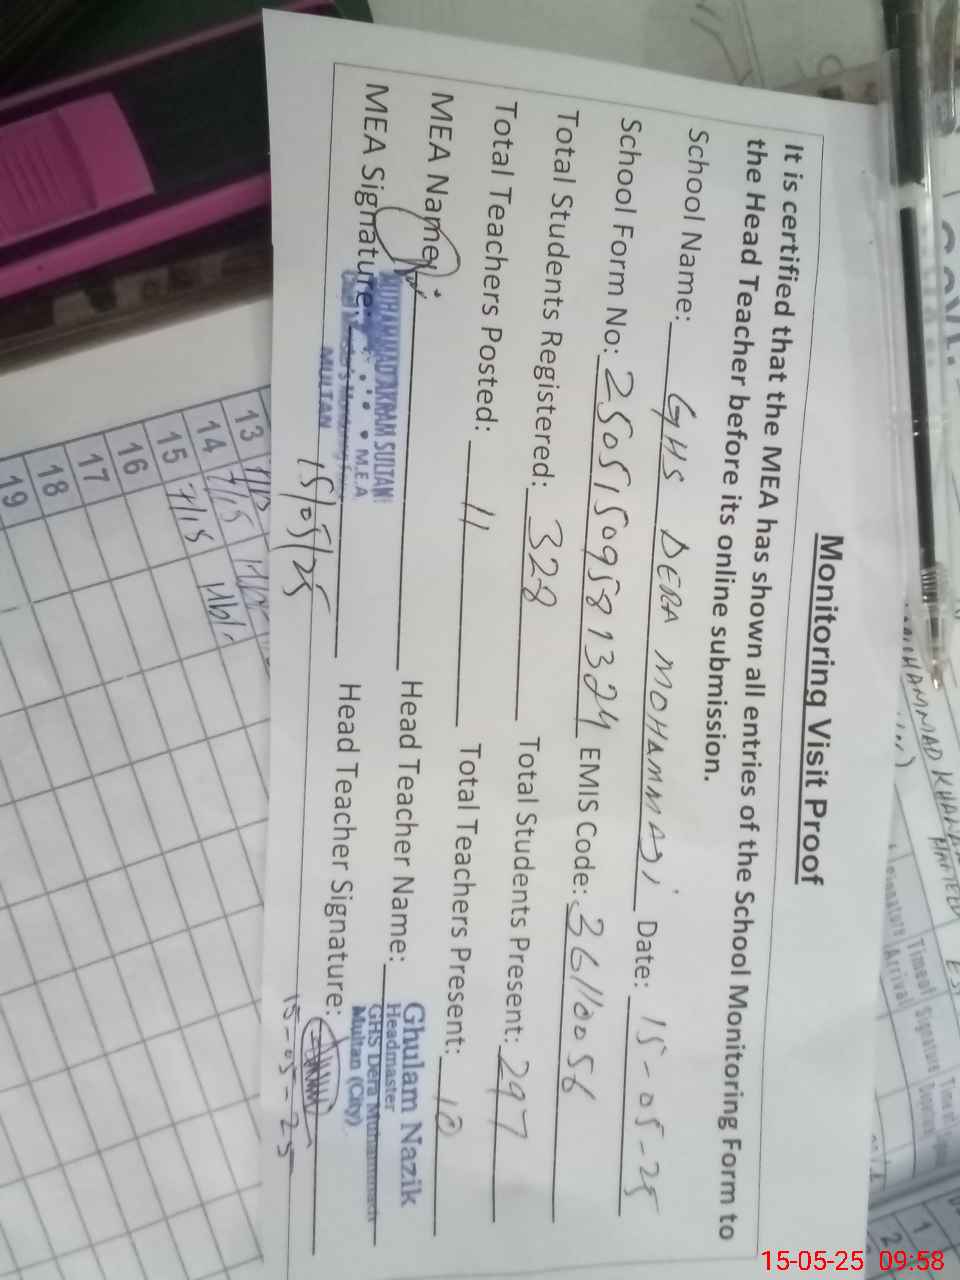 Monitoring Visit Proof
It is certified that the MEA has shown all entries of the School Monitoring Form to
the Head Teacher before its online submission.
School Name: GHS DERA MOHAMMADI Date: 15-05-25
School Form No: 25051509581324 EMIS Code: 36110056
Total Students Registered: 328 Total Students Present: 297
Total Teachers Posted: 11 Total Teachers Present: 10
MEA Name: Head Teacher Name: Ghulam Nazik
MUHAMMAD AKRAM SULTAN Headmaster
M.E.A GHS Dera
MULTAN Multan (City)
MEA Signature: Head Teacher Signature:
15/05/25 15-05-25
13
14 7/15
15 7/15
16
17
18
19
MUHAMMAD KHAN
Signature Arrival
Time of
Signature
1
2
15-05-25 09:58